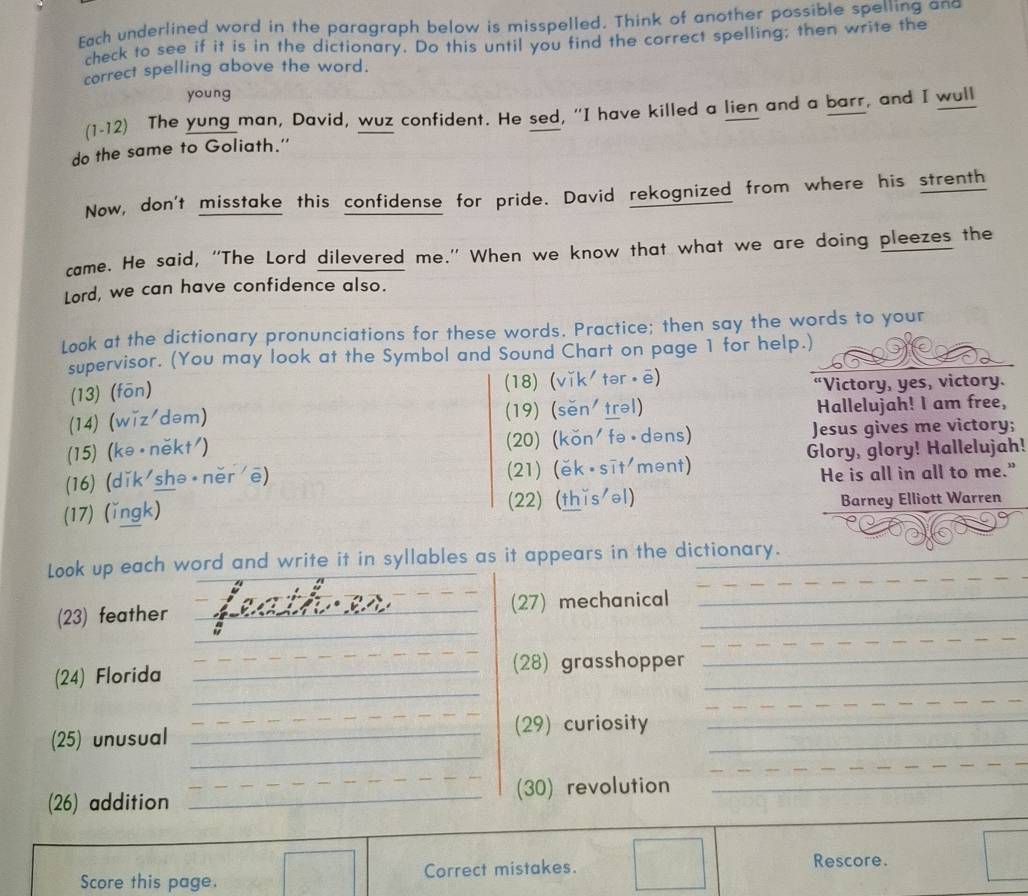 Each underlined word in the paragraph below is misspelled. Think of another possible spelling and
check to see if it is in the dictionary. Do this until you find the correct spelling; then write the
correct spelling above the word.
young
(1-12) The yung man, David, wuz confident. He sed, "I have killed a lien and a barr, and I wull
do the same to Goliath."
Now, don't misstake this confidense for pride. David rekognized from where his strenth
came. He said, "The Lord dilevered me." When we know that what we are doing pleezes the
Lord, we can have confidence also.
Look at the dictionary pronunciations for these words. Practice; then say the words to your
supervisor. (You may look at the Symbol and Sound Chart on page 1 for help.)
(13) (fōn)
(14) (wĭz′dəm)
(15) (kə·nĕkt′)
(16) (dĭk′shə·nĕr′ē)
(17) (ĭngk)
(18) (vĭk′tər·ē)
(19) (sĕn′trəl)
(20) (kŏn′fə·dəns)
(21) (ĕk·sīt′mənt)
(22) (thĭs′əl)
"Victory, yes, victory.
Hallelujah! I am free,
Jesus gives me victory;
Glory, glory! Hallelujah!
He is all in all to me."
Barney Elliott Warren
Look up each word and write it in syllables as it appears in the dictionary.
(23) feather feath·er
(24) Florida
(25) unusual
(26) addition
(27) mechanical
(28) grasshopper
(29) curiosity
(30) revolution
Score this page.
Correct mistakes.
Rescore.